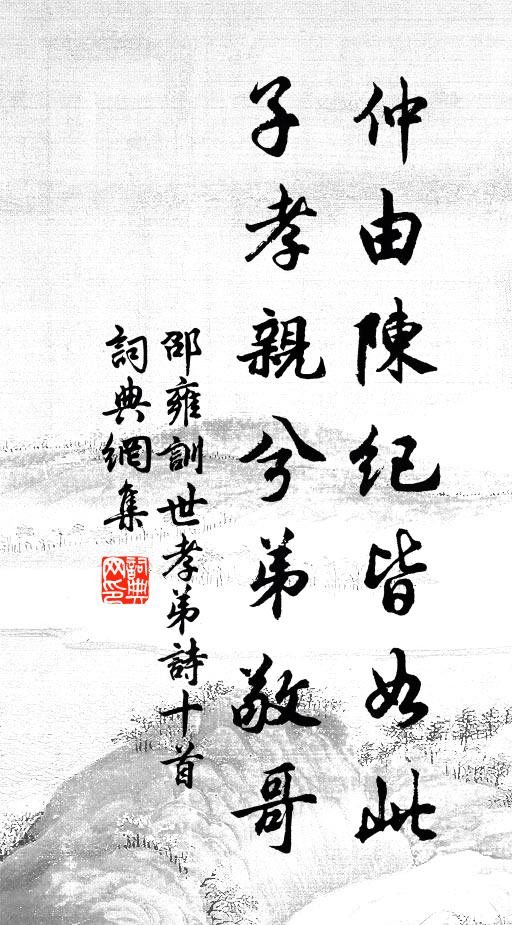 仲由陳紀皆如此
子孝親兮弟敬哥
邵雍訓世孝弟詩十首
詞典網集
詞典網印